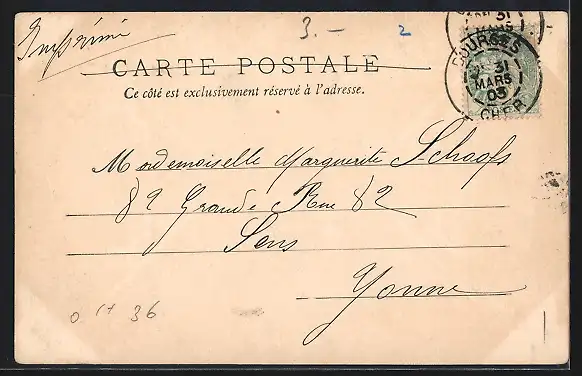 Imprimé
3.-
2
CARTE POSTALE
Ce côté est exclusivement réservé à l'adresse.
BOURGES
31
MARS
03
CHER
31
MARS
Mademoiselle Marguerite Schoofs
82 Grande Rue 82
Sens
Yonne
36